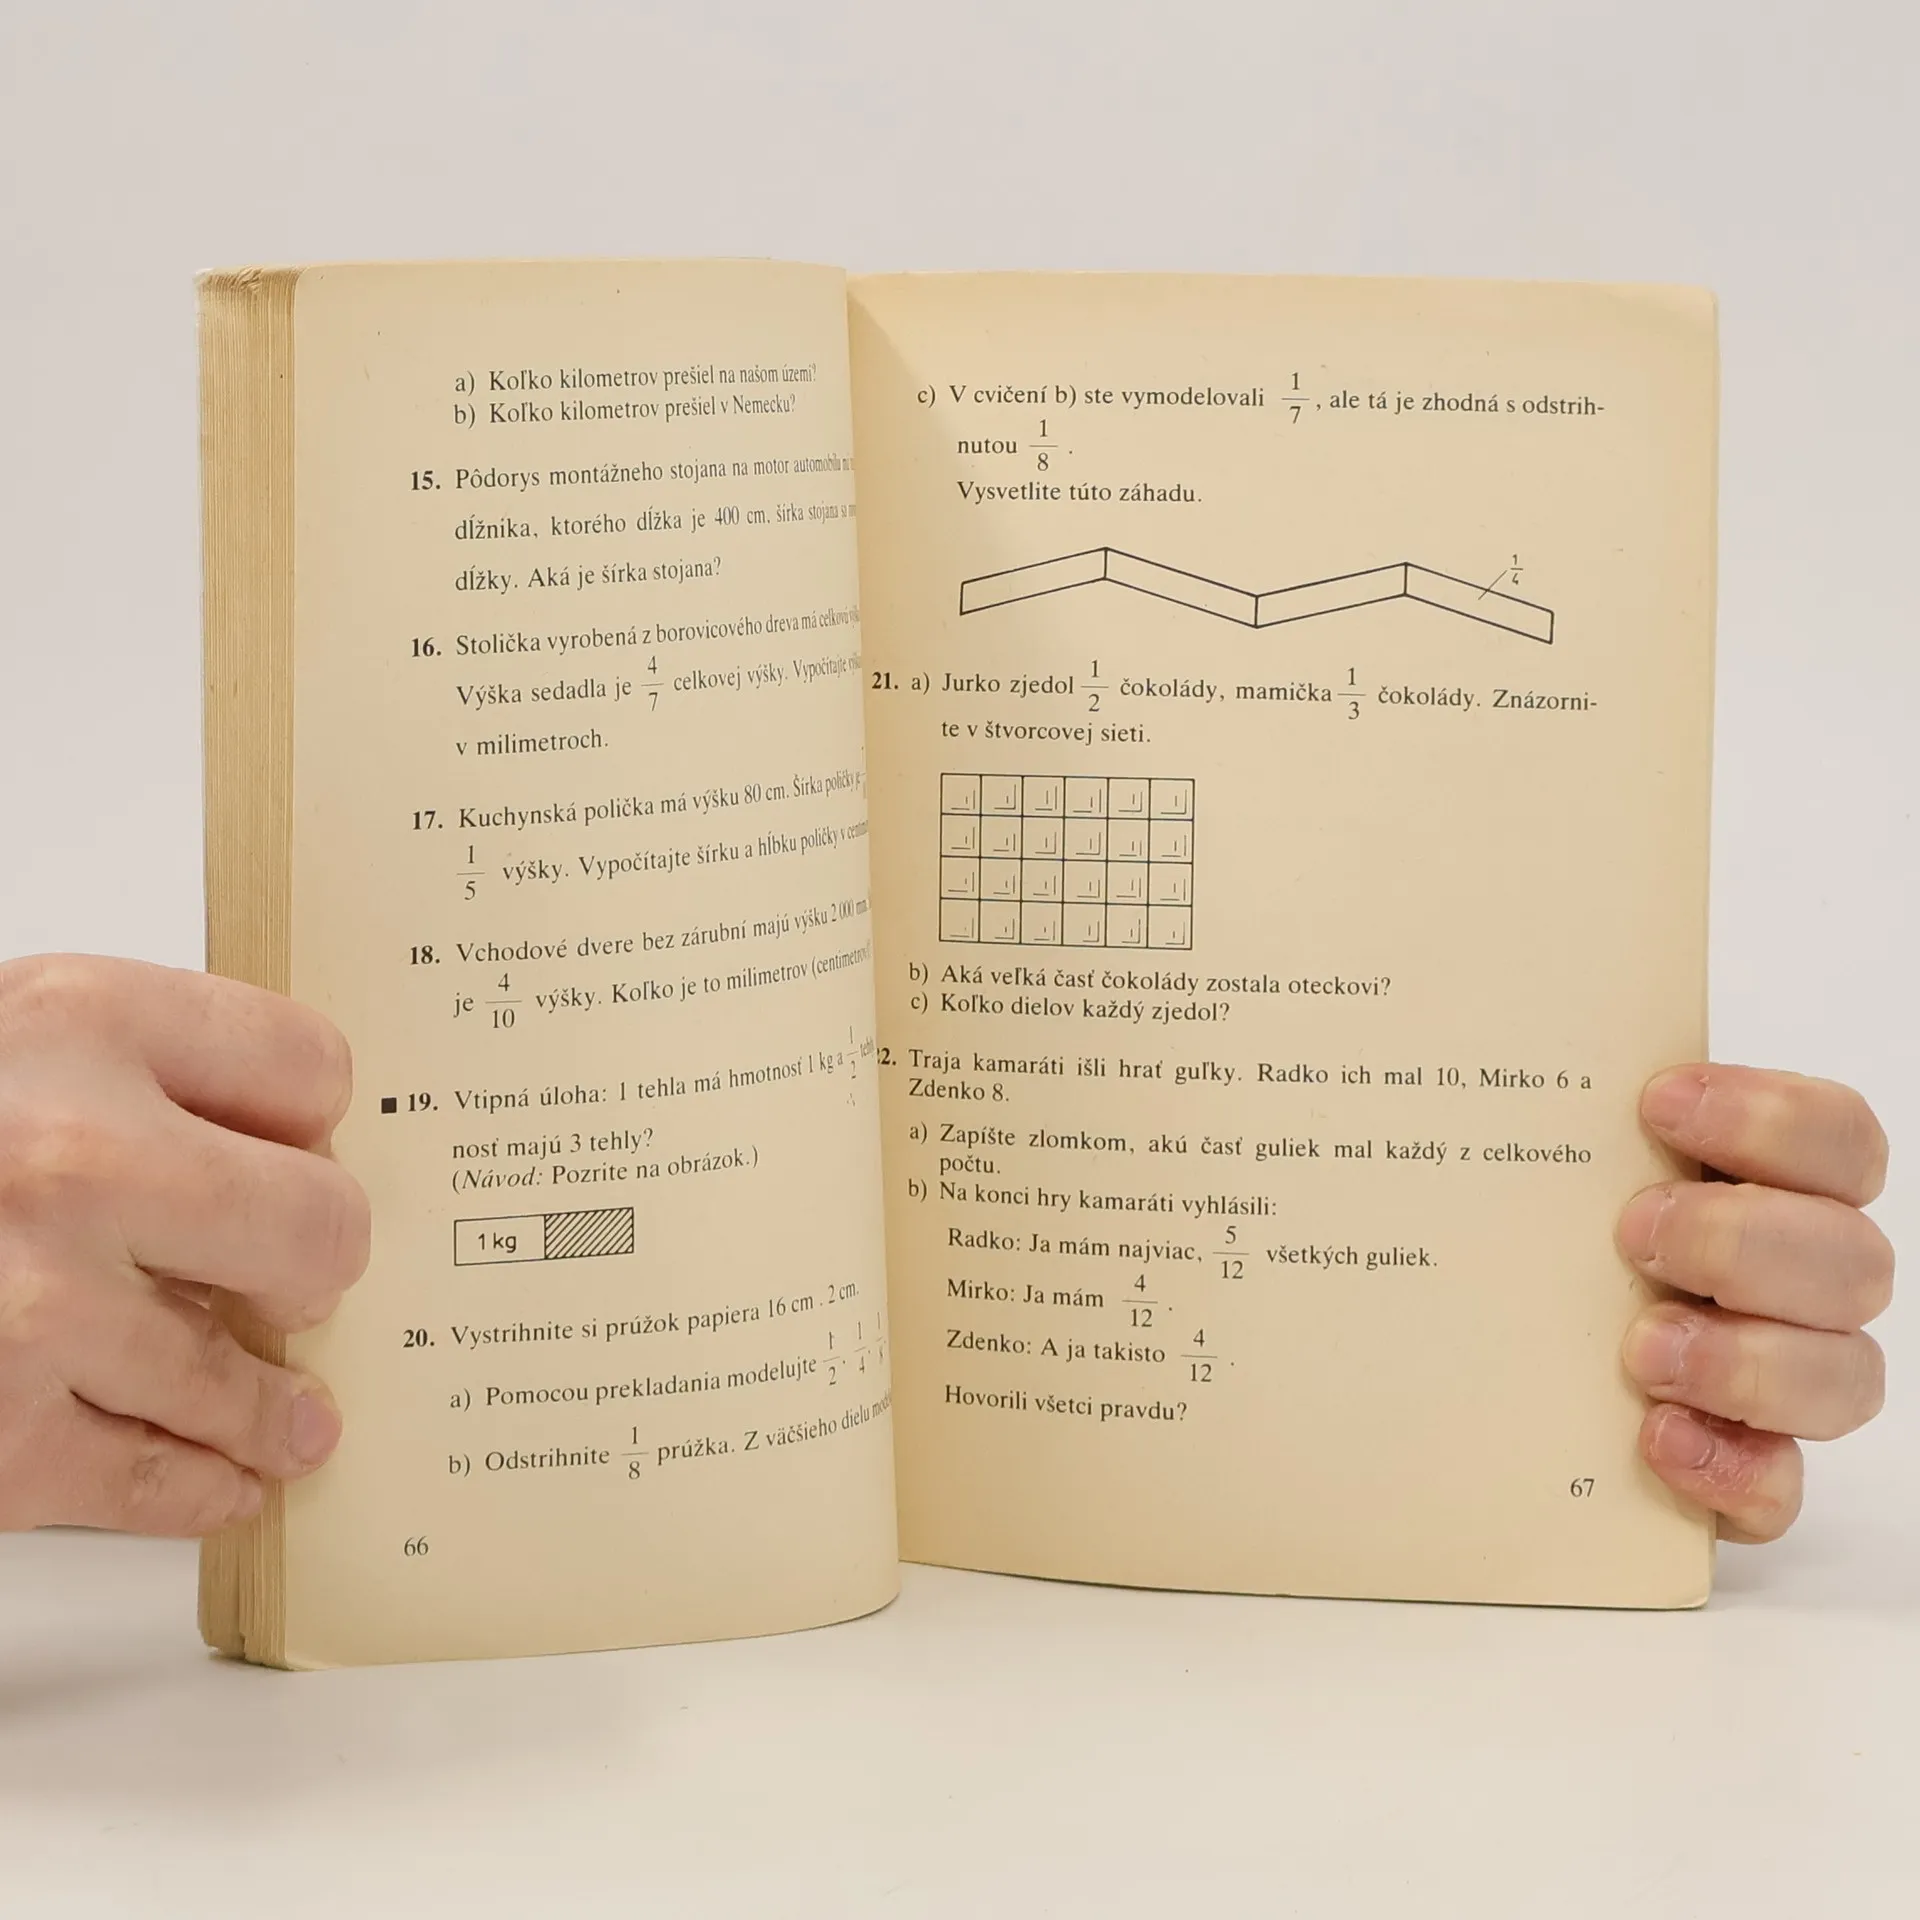 a) Koľko kilometrov prešiel na našom území?
b) Koľko kilometrov prešiel v Nemecku?
15. Pôdorys montážneho stojana na motor automobilu
dĺžnika, ktorého dĺžka je 400 cm, šírka stojana
dĺžky. Aká je šírka stojana?
16. Stolička vyrobená z borovicového dreva má celkovú
Výška sedadla je 4/7 celkovej výšky. Vypočítajte
v milimetroch.
17. Kuchynská polička má výšku 80 cm. Šírka poličky je
1/5 výšky. Vypočítajte šírku a hĺbku poličky v
18. Vchodové dvere bez zárubní majú výšku 2 000 mm.
je 4/10 výšky. Koľko je to milimetrov (centimetrov)
19. Vtipná úloha: 1 tehla má hmotnosť 1 kg a 1/2
nosť majú 3 tehly?
(Návod: Pozrite na obrázok.)
1 kg
20. Vystrihnite si prúžok papiera 16 cm . 2 cm.
a) Pomocou prekladania modelujte 1/2, 1/4, 1/8.
b) Odstrihnite 1/8 prúžka. Z väčšieho dielu
66
c) V cvičení b) ste vymodelovali 1/7, ale tá je zhodná s odstrih-
nutou 1/8.
Vysvetlite túto záhadu.
1/4
21. a) Jurko zjedol 1/2 čokolády, mamička 1/3 čokolády. Znázorni-
te v štvorcovej sieti.
b) Aká veľká časť čokolády zostala oteckovi?
c) Koľko dielov každý zjedol?
22. Traja kamaráti išli hrať guľky. Radko ich mal 10, Mirko 6 a
Zdenko 8.
a) Zapíšte zlomkom, akú časť guliek mal každý z celkového
počtu.
b) Na konci hry kamaráti vyhlásili:
Radko: Ja mám najviac, 5/12 všetkých guliek.
Mirko: Ja mám 4/12.
Zdenko: A ja takisto 4/12.
Hovorili všetci pravdu?
67